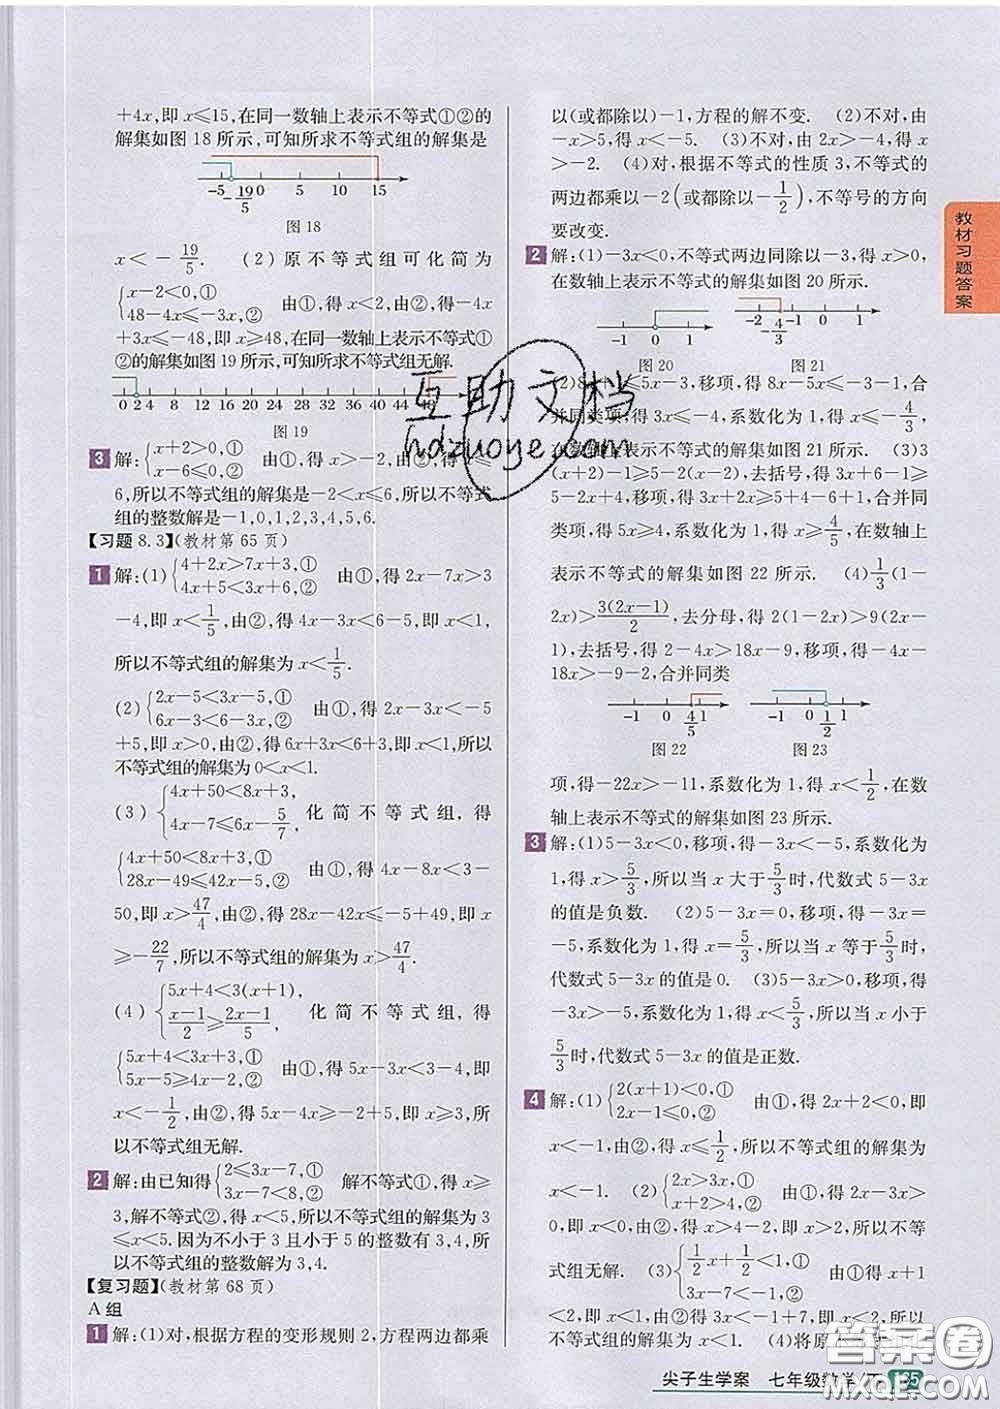 +4x,即 x≤15,在同一数轴上表示不等式①②的
解集如图 18 所示,可知所求不等式组的解集是
-5 -19/5 0 5 10 15
图 18
x<-19/5. (2)原不等式组可化简为
{x-2<0,① 48-4x≤-3x,② 由①,得 x<2,由②,得-4x
+3x≤-48,即 x≥48,在同一数轴上表示不等式①
②的解集如图 19 所示,可知所求不等式组无解.
0 2 4 8 12 16 20 24 28 32 36 40 44 48
图 19
3 解:{x+2>0,① x-6≤0,② 由①,得 x>-2,由②,得
6,所以不等式组的解集是-2<x≤6,所以不等式
组的整数解是-1,0,1,2,3,4,5,6.
【习题 8.3】(教材第 65 页)
1 解:(1){4+2x>7x+3,① 4x+5<3x+6,② 由①,得 2x-7x>3
-4,即 x<1/5,由②,得 4x-3x<6-5,即 x<1,
所以不等式组的解集为 x<1/5.
(2){2x-5<3x-5,① 6x-3<3-6x,② 由①,得 2x-3x<-5
+5,即 x>0,由②,得 6x+3x<6+3,即 x<1,所以
不等式组的解集为 0<x<1.
(3){4x+50<8x+3, 4x-7≤6x-5/7, 化简不等式组,得
{4x+50<8x+3,① 28x-49≤42x-5,② 由①,得 4x-8x<3-
50,即 x>47/4,由②,得 28x-42x≤-5+49,即 x
≥-22/7,所以不等式组的解集为 x>47/4.
(4){5x+4<3(x+1), (x-1)/2≥(2x-1)/5, 化简不等式组,得
{5x+4<3x+3,① 5x-5≥4x-2,② 由①,得 5x-3x<3-4,即
x<-1/2,由②,得 5x-4x≥-2+5,即 x≥3,所
以不等式组无解.
2 解:由已知得{2≤3x-7,① 3x-7<8,② 解不等式①,得 x≥
3,解不等式②,得 x<5,所以不等式组的解集为 3
≤x<5.因为不小于 3 且小于 5 的整数有 3,4,所
以不等式组的整数解为 3,4.
【复习题】(教材第 68 页)
A 组
1 解:(1)对,根据方程的变形规则 2,方程两边都乘
以(或都除以)-1,方程的解不变. (2)不对,由
-x>5,得 x<-5. (3)不对,由 2x>-4,得 x
>-2. (4)对,根据不等式的性质 3,不等式的
两边都乘以-2(或都除以-1/2),不等号的方向
要改变.
2 解:(1)-3x<0,不等式两边同除以-3,得 x>0,
在数轴上表示不等式的解集如图 20 所示.
-1 0 1
图 20
-2 -4/3 -1 0 1
图 21
≤5x-3,移项,得 8x-5x≤-3-1,合
并同类项,得 3x≤-4,系数化为 1,得 x≤-4/3,
在数轴上表示不等式的解集如图 21 所示. (3)3
(x+2)-1≥5-2(x-2),去括号,得 3x+6-1≥
5-2x+4,移项,得 3x+2x≥5+4-6+1,合并同
类项,得 5x≥4,系数化为 1,得 x≥4/5,在数轴上
表示不等式的解集如图 22 所示. (4)1/3(1-
2x)>3(2x-1)/2,去分母,得 2(1-2x)>9(2x-
1),去括号,得 2-4x>18x-9,移项,得-4x-
18x>-9-2,合并同类
-1 0 4/5 1
图 22
-1 0 1/2 1
图 23
项,得-22x>-11,系数化为 1,得 x<1/2,在数
轴上表示不等式的解集如图 23 所示.
3 解:(1)5-3x<0,移项,得-3x<-5,系数化为
1,得 x>5/3,所以当 x 大于5/3时,代数式 5-3x
的值是负数. (2)5-3x=0,移项,得-3x=
-5,系数化为 1,得 x=5/3,所以当 x 等于5/3时,
代数式 5-3x 的值是 0. (3)5-3x>0,移项,得
-3x>-5,系数化为 1,得 x<5/3,所以当 x 小于
5/3时,代数式 5-3x 的值是正数.
4 解:(1){2(x+1)<0,① 2x-1≤0,② 由①,得 2x+2<0,即
x<-1,由②,得 x≤1/2,所以不等式组的解集为
x<-1. (2){2x>3x,① x+2>4,② 由①,得 2x-3x>
0,即 x<0,由②,得 x>4-2,即 x>2,所以不等
式组无解. (3){1/2x+1/2<1,① 3x-7<-1,② 由①,得 x+1
<2,即 x<1,由②,得 3x<-1+7,即 x<2,所以
不等式组的解集为 x<1. (4)将原不
教材习题答案
互助文档
hdzuoye.com
尖子生学案 七年级数学 下 165
答案圈
MXQE.COM